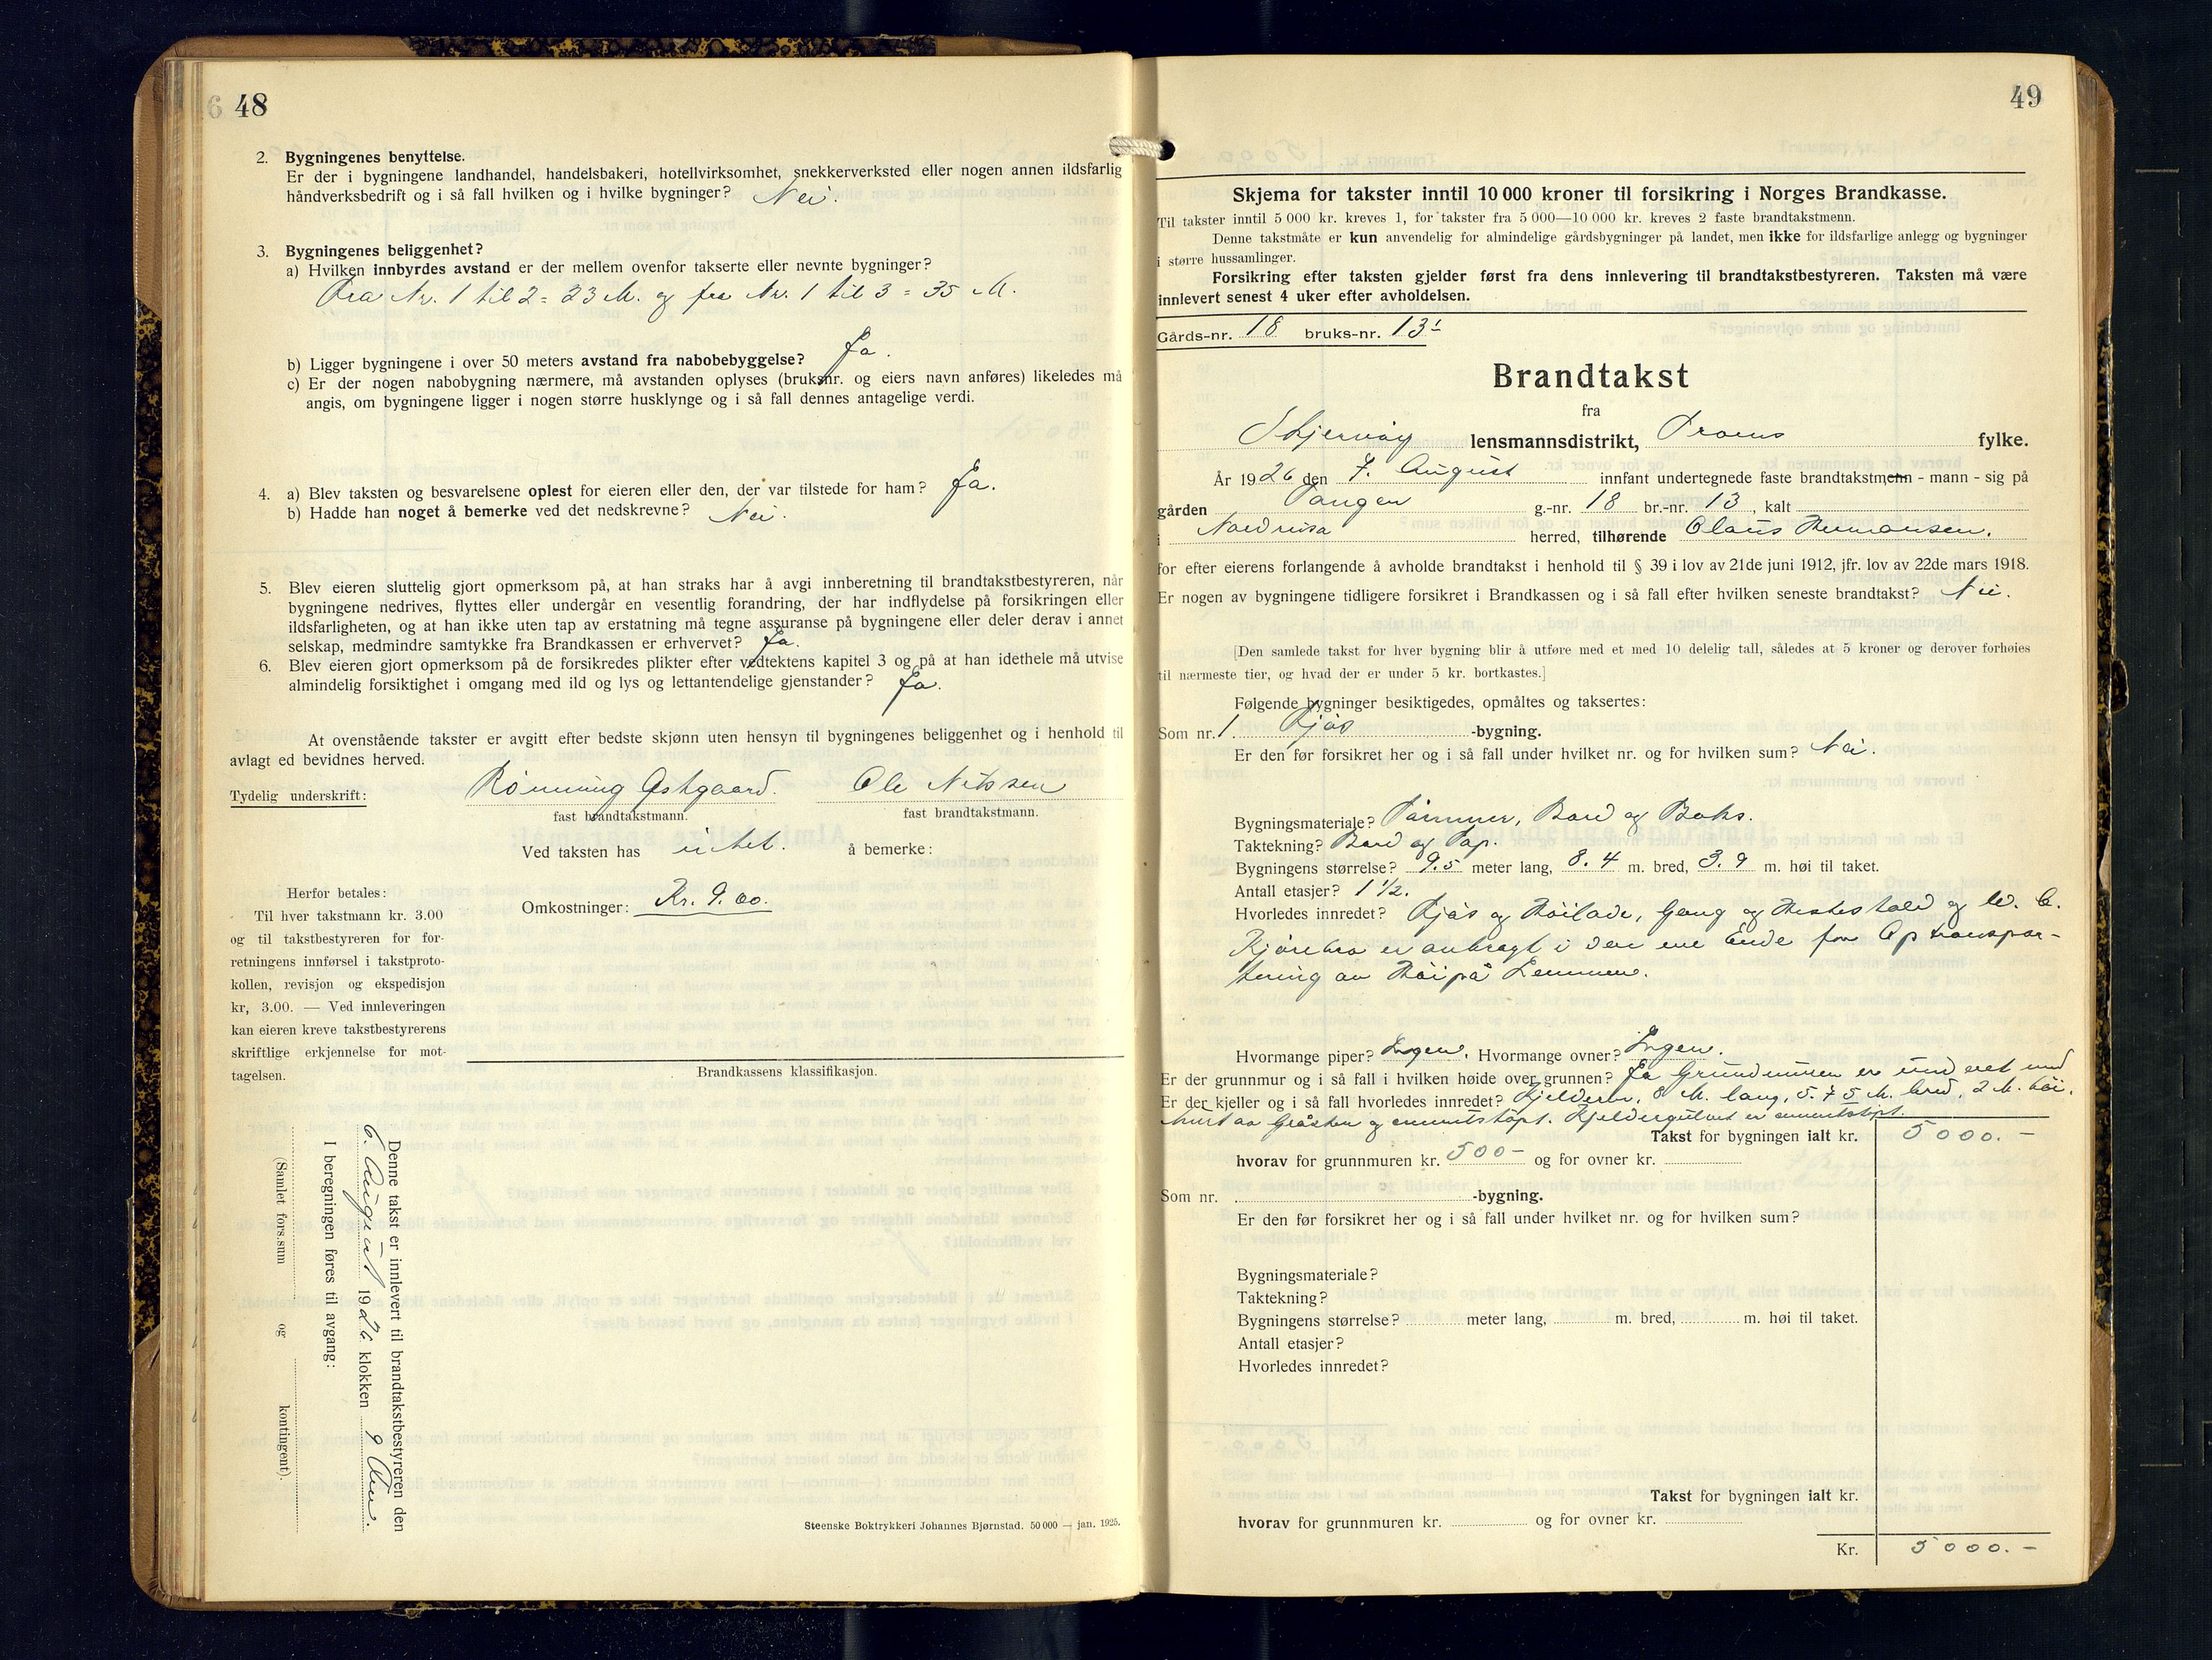 48
2. Bygningenes benyttelse.
Er der i bygningene landhandel, handelsbakeri, hotellvirksomhet, snekkerverksted eller nogen annen ildsfarlig
håndverksbedrift og i så fall hvilken og i hvilke bygninger? Nei.
3. Bygningenes beliggenhet?
a) Hvilken innbyrdes avstand er der mellem ovenfor takserte eller nevnte bygninger?
Fra Nr. 1 til 2 = 23 M. og fra Nr. 1 til 3 = 35 M.
b) Ligger bygningene i over 50 meters avstand fra nabobebyggelse? Ja.
c) Er der nogen nabobygning nærmere, må avstanden oplyses (bruksnr. og eiers navn anføres) likeledes må
angis, om bygningene ligger i nogen større husklynge og i så fall dennes antagelige verdi.
4. a) Blev taksten og besvarelsene oplest for eieren eller den, der var tilstede for ham? Ja.
b) Hadde han noget å bemerke ved det nedskrevne? Nei.
5. Blev eieren sluttelig gjort opmerksom på, at han straks har å avgi innberetning til brandtakstbestyreren, når
bygningene nedrives, flyttes eller undergår en vesentlig forandring, der har indflydelse på forsikringen eller
ildsfarligheten, og at han ikke uten tap av erstatning må tegne assuranse på bygningene eller deler derav i annet
selskap, medmindre samtykke fra Brandkassen er erhvervet? Ja.
6. Blev eieren gjort opmerksom på de forsikredes plikter efter vedtektens kapitel 3 og på at han idethele må utvise
almindelig forsiktighet i omgang med ild og lys og lettantendelige gjenstander? Ja.
At ovenstående takster er avgitt efter bedste skjønn uten hensyn til bygningenes beliggenhet og i henhold til
avlagt ed bevidnes herved.
Tydelig underskrift: Rönning Östgaard. Ole Nilssen
fast brandtakstmann. fast brandtakstmann.
Ved taksten has intet. å bemerke:
Omkostninger: Kr. 9.00.
Herfor betales:
Til hver takstmann kr. 3.00
og til takstbestyreren for for-
retningens innførsel i takstproto-
kollen, revisjon og ekspedisjon
kr, 3.00. — Ved innleveringen
kan eieren kreve takstbestyrerens
skriftlige erkjennelse for mot-
tagelsen.
Brandkassens klassifikasjon.
Denne takst er innlevert til brandtakstbestyreren den
6. August 1926 klokken 9 Fm.
I beregningen føres til avgang:
(Samlet fors.sum og kontingent).
Steenske Boktrykkeri Johannes Bjørnstad. 50 000 — jan. 1925.
49
Skjema for takster inntil 10 000 kroner til forsikring i Norges Brandkasse.
Til takster inntil 5 000 kr. kreves 1, for takster fra 5 000—10 000 kr. kreves 2 faste brandtakstmenn.
Denne takstmåte er kun anvendelig for almindelige gårdsbygninger på landet, men ikke for ildsfarlige anlegg og bygninger
i større hussamlinger.
Forsikring efter taksten gjelder først fra dens innlevering til brandtakstbestyreren. Taksten må være
innlevert senest 4 uker efter avholdelsen.
Gårds-nr. 18 bruks-nr. 13
Brandtakst
fra
Skjervöy lensmannsdistrikt, Troms fylke.
År 1926 den 7. August innfant undertegnede faste brandtakstmenn - mann - sig på
gården Tangen g.-nr. 18 br.-nr. 13, kalt
i Nordreisa herred, tilhørende Olaus Hermansen.
for efter eierens forlangende å avholde brandtakst i henhold til § 39 i lov av 21de juni 1912, jfr. lov av 22de mars 1918.
Er nogen av bygningene tidligere forsikret i Brandkassen og i så fall efter hvilken seneste brandtakst? Nei.
[Den samlede takst for hver bygning blir å utføre med et med 10 delelig tall, således at 5 kroner og derover forhøies
til nærmeste tier, og hvad der er under 5 kr. bortkastes.]
Følgende bygninger besiktigedes, opmåltes og taksertes:
Som nr. 1. Fjös -bygning.
Er den før forsikret her og i så fall under hvilket nr. og for hvilken sum? Nei.
Bygningsmateriale? Tömmer, Bord og Boks.
Taktekning? Bord og Pap.
Bygningens størrelse? 9.5 meter lang, 8.4 m. bred, 3.9 m. høi til taket.
Antall etasjer? 1 1/2.
Hvorledes innredet? Fjös og Höilade, Gang og Hestestald og W. C.
Kjörebro er anbragt i den ene Ende for Optranspor-
tering av Höi på Lemmen.
Hvormange piper? Ingen. Hvormange ovner? Ingen.
Er der grunnmur og i så fall i hvilken høide over grunnen? Ja Grundmuren er
Er der kjeller og i så fall hvorledes innredet? Kjelderen, 8 M. lang, 5.75 M. bred, 2 M. höi,
murt av Gråsten og cementstöpt. Kjeldergulvet er cementstöpt.
Takst for bygningen ialt kr. 5000.-
hvorav for grunnmuren kr. 500- og for ovner kr.
Som nr. -bygning.
Er den før forsikret her og i så fall under hvilket nr. og for hvilken sum?
Bygningsmateriale?
Taktekning?
Bygningens størrelse? meter lang, m. bred, m. høi til taket.
Antall etasjer?
Hvorledes innredet?
Takst for bygningen ialt kr.
hvorav for grunnmuren kr. og for ovner kr.
Kr. 5000.-